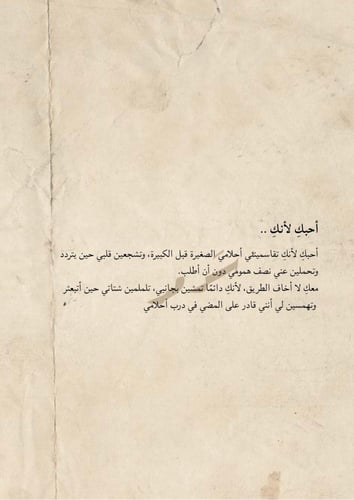 أحبكِ لأنكِ ..
أحبكِ لأنكِ تقاسمينئي أحلامي الصغيرة قبل الكبيرة، وتشجعين قلبي حين يتردد
وتحملين عني نصف همومي دون أن أطلب.
معكِ لا أخاف الطريق، لأنكِ دائمًا تمشين بجانبي، تلملمين شتاتي حين أتبعثر
وتهمسين لي أنني قادر على المضي في درب أحلامي